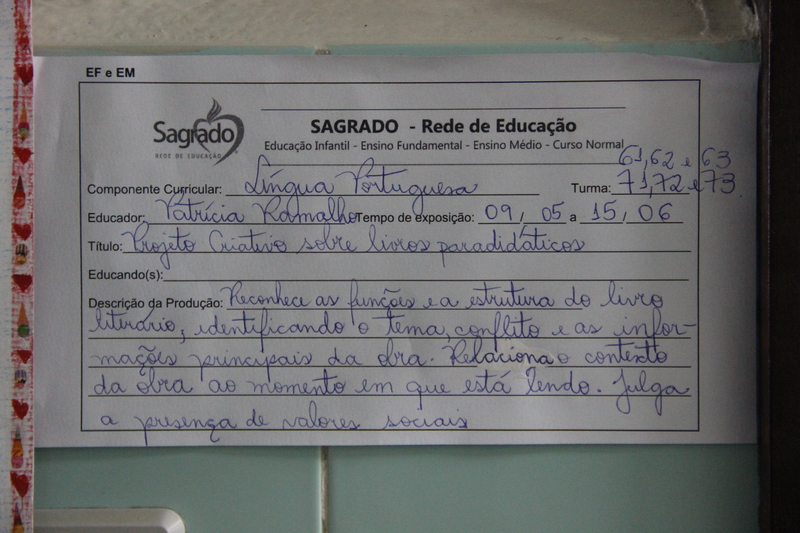 EF e EM
Sagrado
REDE DE EDUCAÇÃO
SAGRADO - Rede de Educação
Educação Infantil - Ensino Fundamental - Ensino Médio - Curso Normal
61, 62 e 63
Componente Curricular: Língua Portuguesa Turma: 71, 72 e 73
Educador: Patrícia Ramalho Tempo de exposição: 09 / 05 a 15 / 06
Título: Projeto Criativo sobre livros paradidáticos
Educando(s):
Descrição da Produção: Reconhece as funções e a estrutura do livro
literário, identificando o tema, conflito e as infor-
mações principais da obra. Relaciona o contexto
da obra ao momento em que está lendo. Julga
a presença de valores sociais